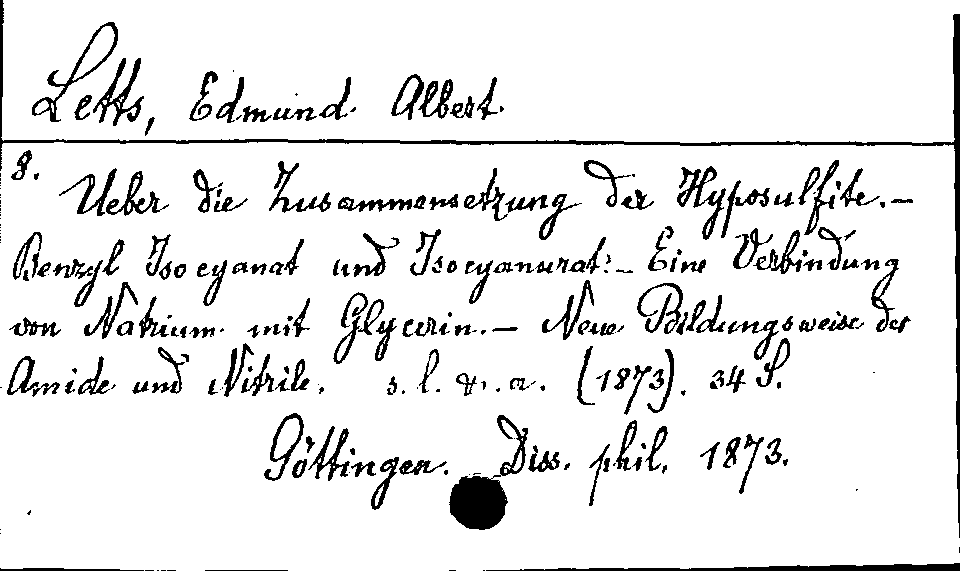 Letts, Edmund Albert.
8.
Ueber die Zusammensetzung der Hyposulfite.—
Benzyl Isocyanat und Isocyanurat.— Eine Verbindung
von Natrium mit Glycerin.— Neue Bildungsweise der
Amide und Nitrile. s. l. et. a. (1873). 34 S.
Göttingen. Diss. phil. 1873.